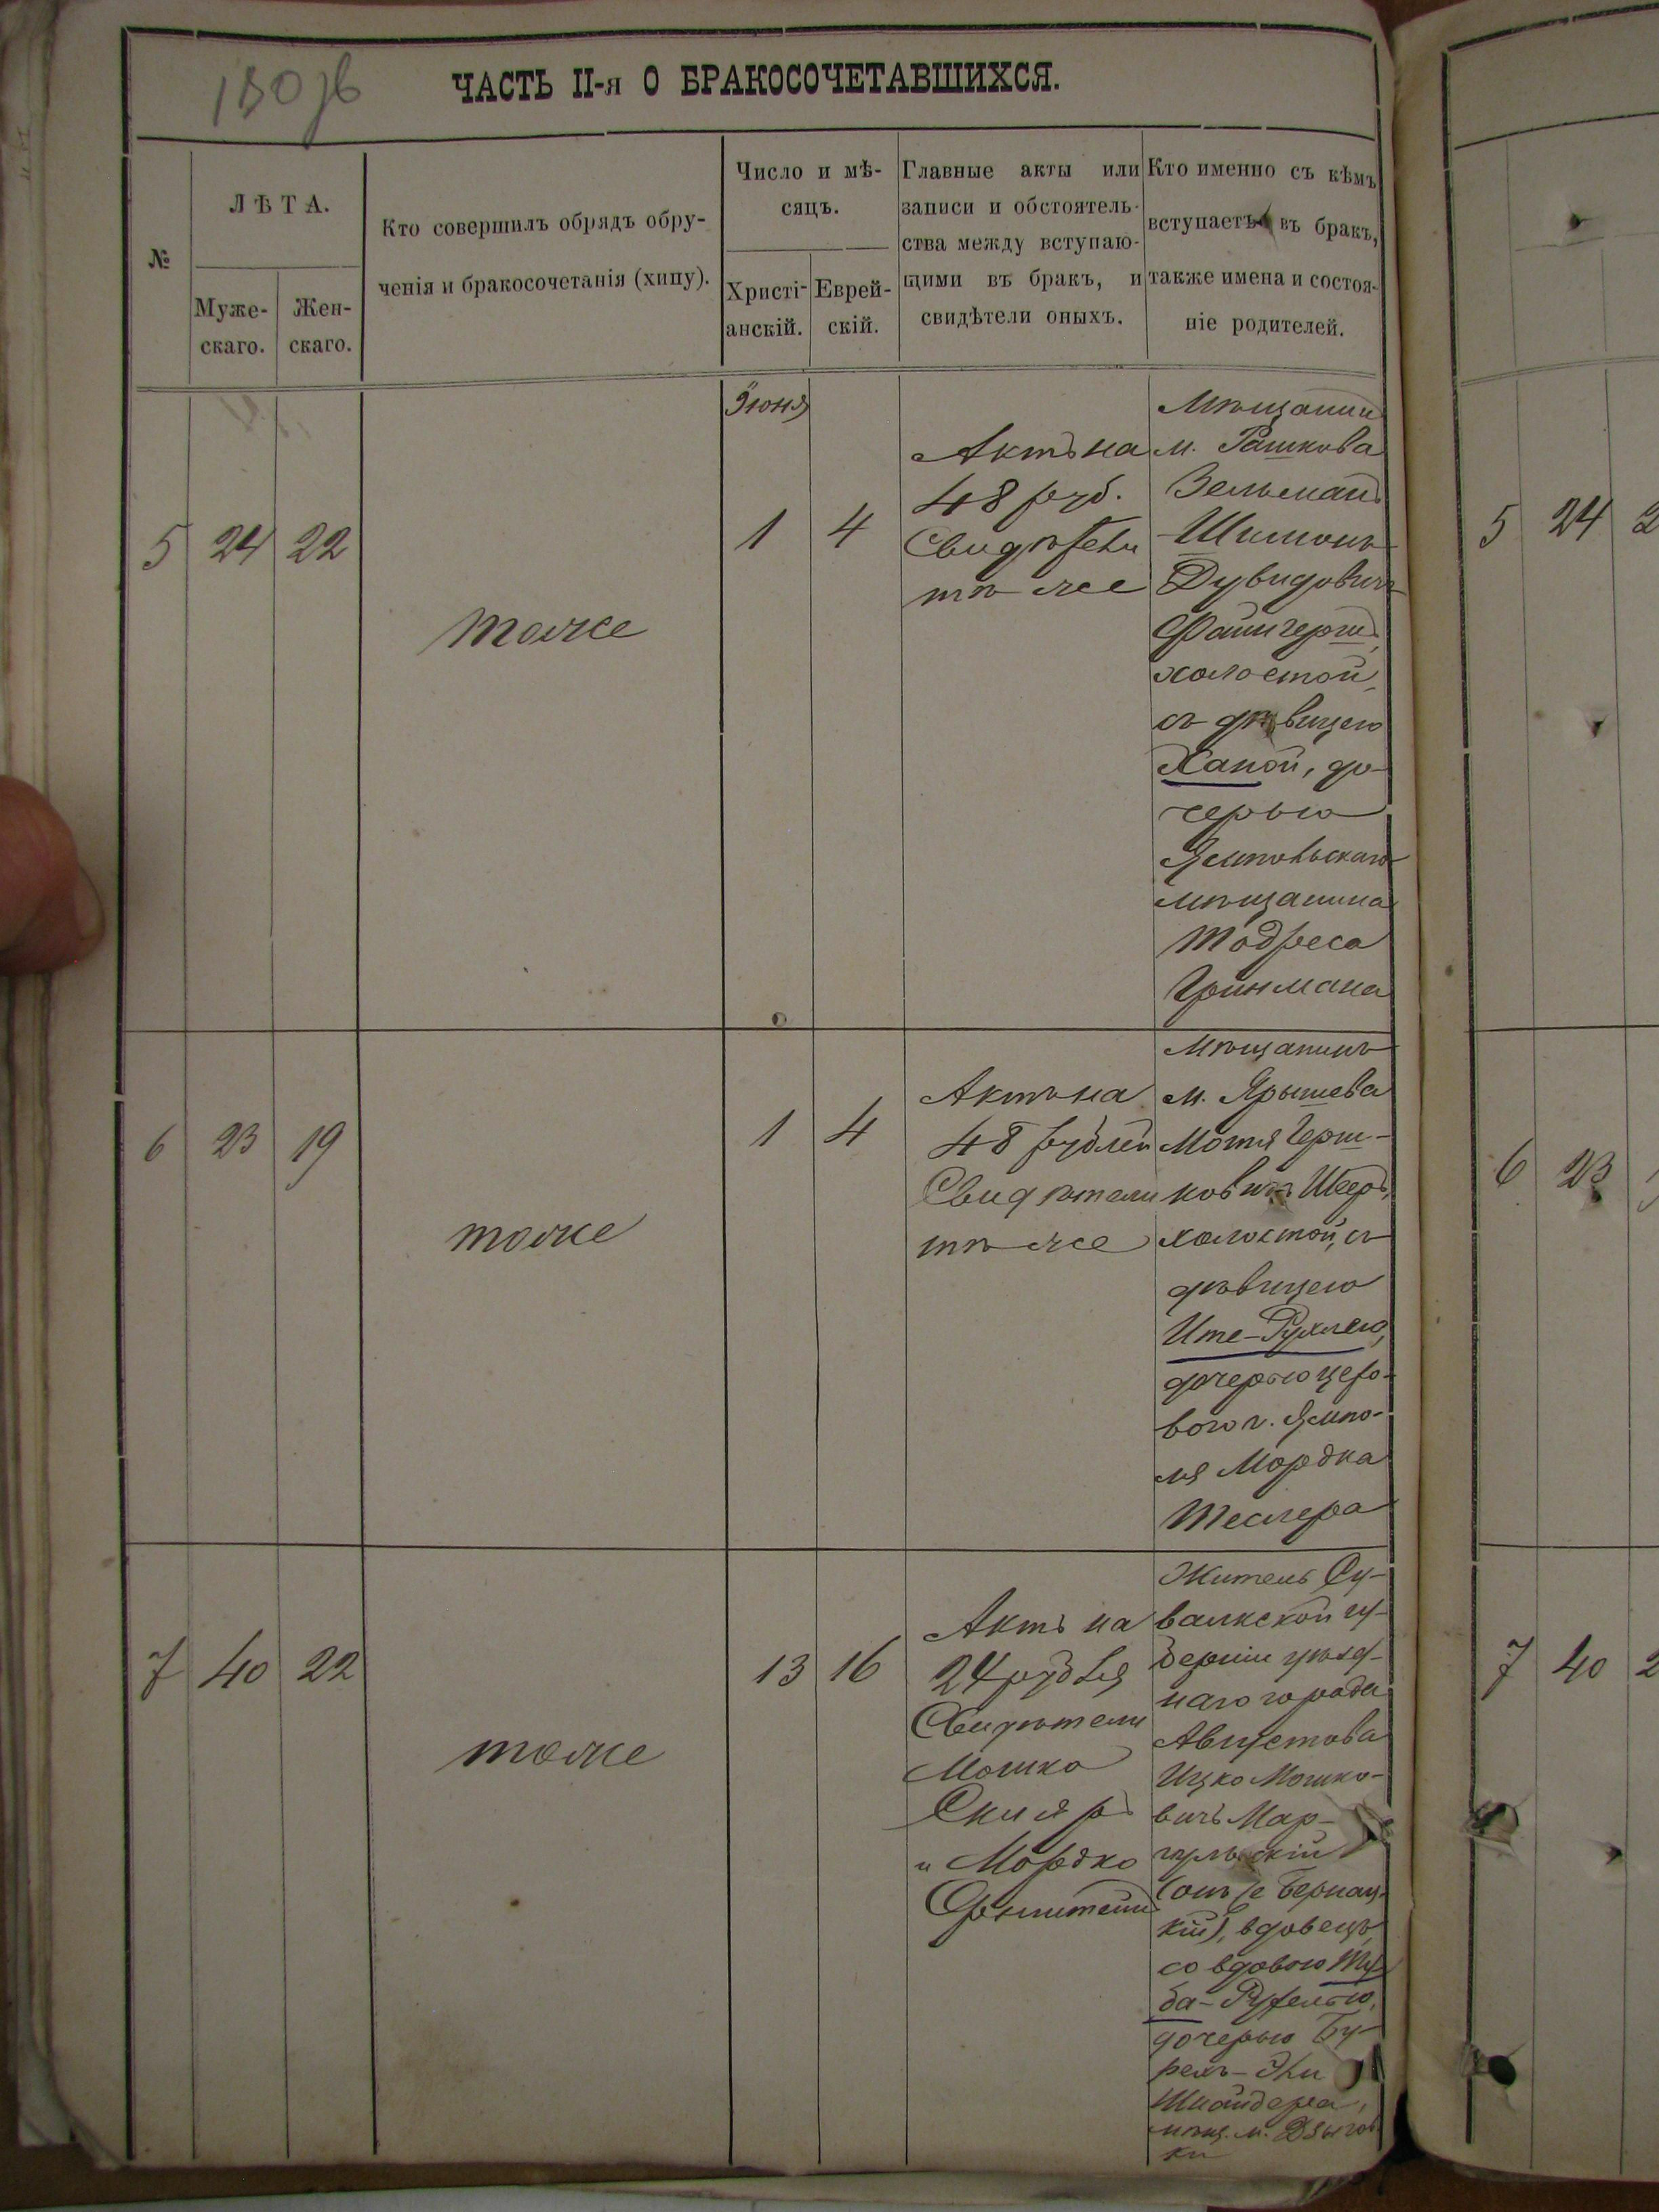 ЧАСТЬ II-я О БРАКОСОЧЕТАВШИХСЯ.
№
ЛѢТА.
Муже-
скаго.
Жен-
скаго.
Кто совершилъ обрядъ обру-
ченія и бракосочетанія (хипу).
Число и мѣ-
сяцъ.
Христі-
анскій.
Еврей-
скій.
Главные акты или
записи и обстоятель-
ства между вступаю-
щими въ бракъ, и
свидѣтели оныхъ.
Кто именно съ кѣмъ
вступаетъ въ бракъ,
также имена и состоя-
ніе родителей.
5
24
22
тоже
Іюня
1
4
Актъ на
48 руб.
Свидѣтели
тѣ же
Мѣщанинъ
м. Рашкова
Зельманъ
Шимонъ
Дувидовичъ
холостой,
съ дѣвицею
Ханой, до-
черью
Ямпольскаго
мѣщанина
Тодреса
Гринмана
6
23
19
тоже
1
4
Актъ на
48 рублей
Свидѣтели
тѣ же
Мѣщанинъ
м. Ярышева
Мотя Герш-
ковичъ Шееръ,
холостой, съ
дѣвицею
Ите-Рухлею,
дочерью цехо-
вого г. Ямпо-
ля Мордка
Теслера
7
40
22
тоже
13
16
Актъ на
24 рубля
Свидѣтели
Мошко
Скляръ
и Мордко
Житель Су-
валкской гу-
берніи уѣзд-
наго города
Августова
Ицко Мошко-
вичъ Мар-
гульскій
(онъ же Бернац-
кій), вдовецъ,
со вдовою Ту-
ба-Рухелью,
дочерью
Шнайдера,
мѣщ. м. Дзыгов-
ки
5 24 2
6 23
7 40 2